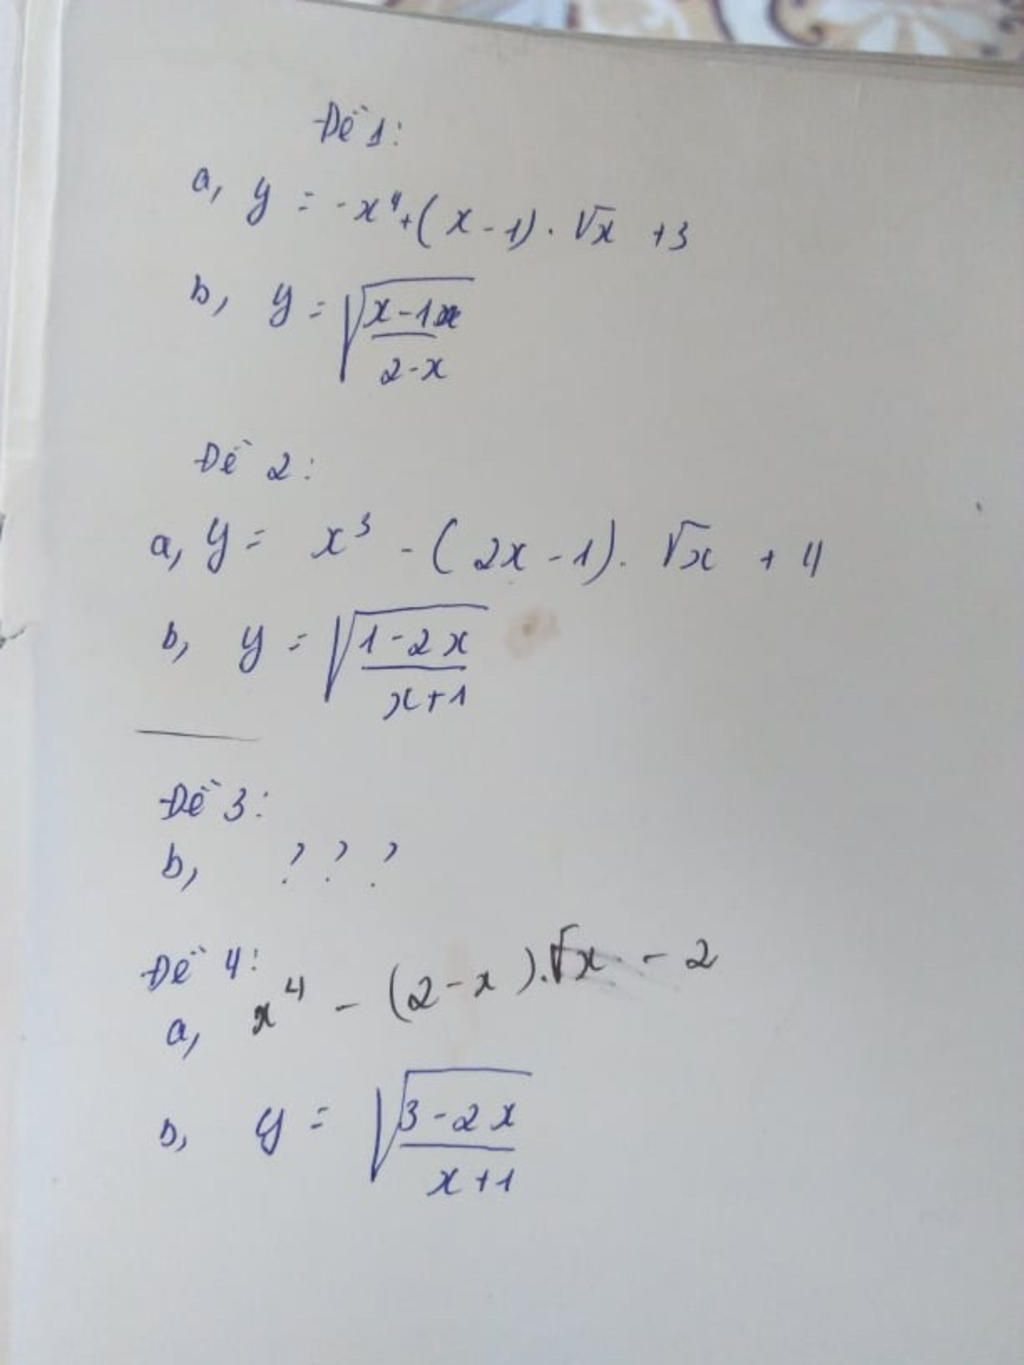 Đề 1:
a, y = -x⁴ + (x - 1) . √x + 3
b, y = √((x - 1)/(2 - x))
Đề 2:
a, y = x³ - (2x - 1) . √x + 4
b, y = √((1 - 2x)/(x + 1))
Đề 3:
b, ? ? ?
Đề 4:
a, x⁴ - (2 - x).√x - 2
b, y = √((3 - 2x)/(x + 1))